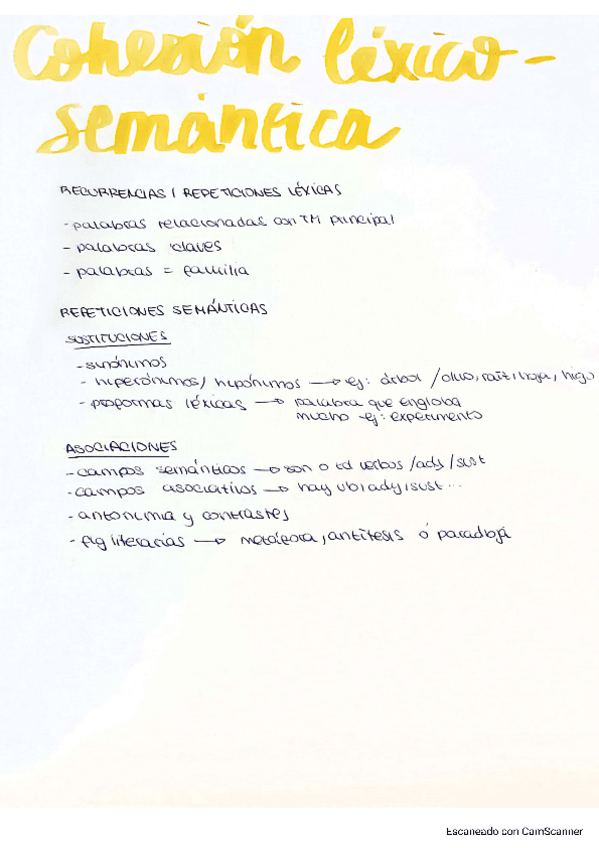 Cohesión léxico-
semántica
RECURRENCIAS / REPETICIONES LÉXICAS
- palabras relacionadas con TM principal
- palabras claves
- palabras = familia
REPETICIONES SEMÁNTICAS
SUSTITUCIONES
- sinónimos
- hiperónimos / hipónimos → ej: árbol / olivo, raíz, hoja, higo
- proformas léxicas → palabra que engloba
mucho ej: experimento
ASOCIACIONES
- campos semánticos → son o td verbos / adj / sust
- campos asociativos → hay vb, adj, sust...
- antonimia y contrastes
- fig literarias → metáfora, antítesis ó paradoja
Escaneado con CamScanner